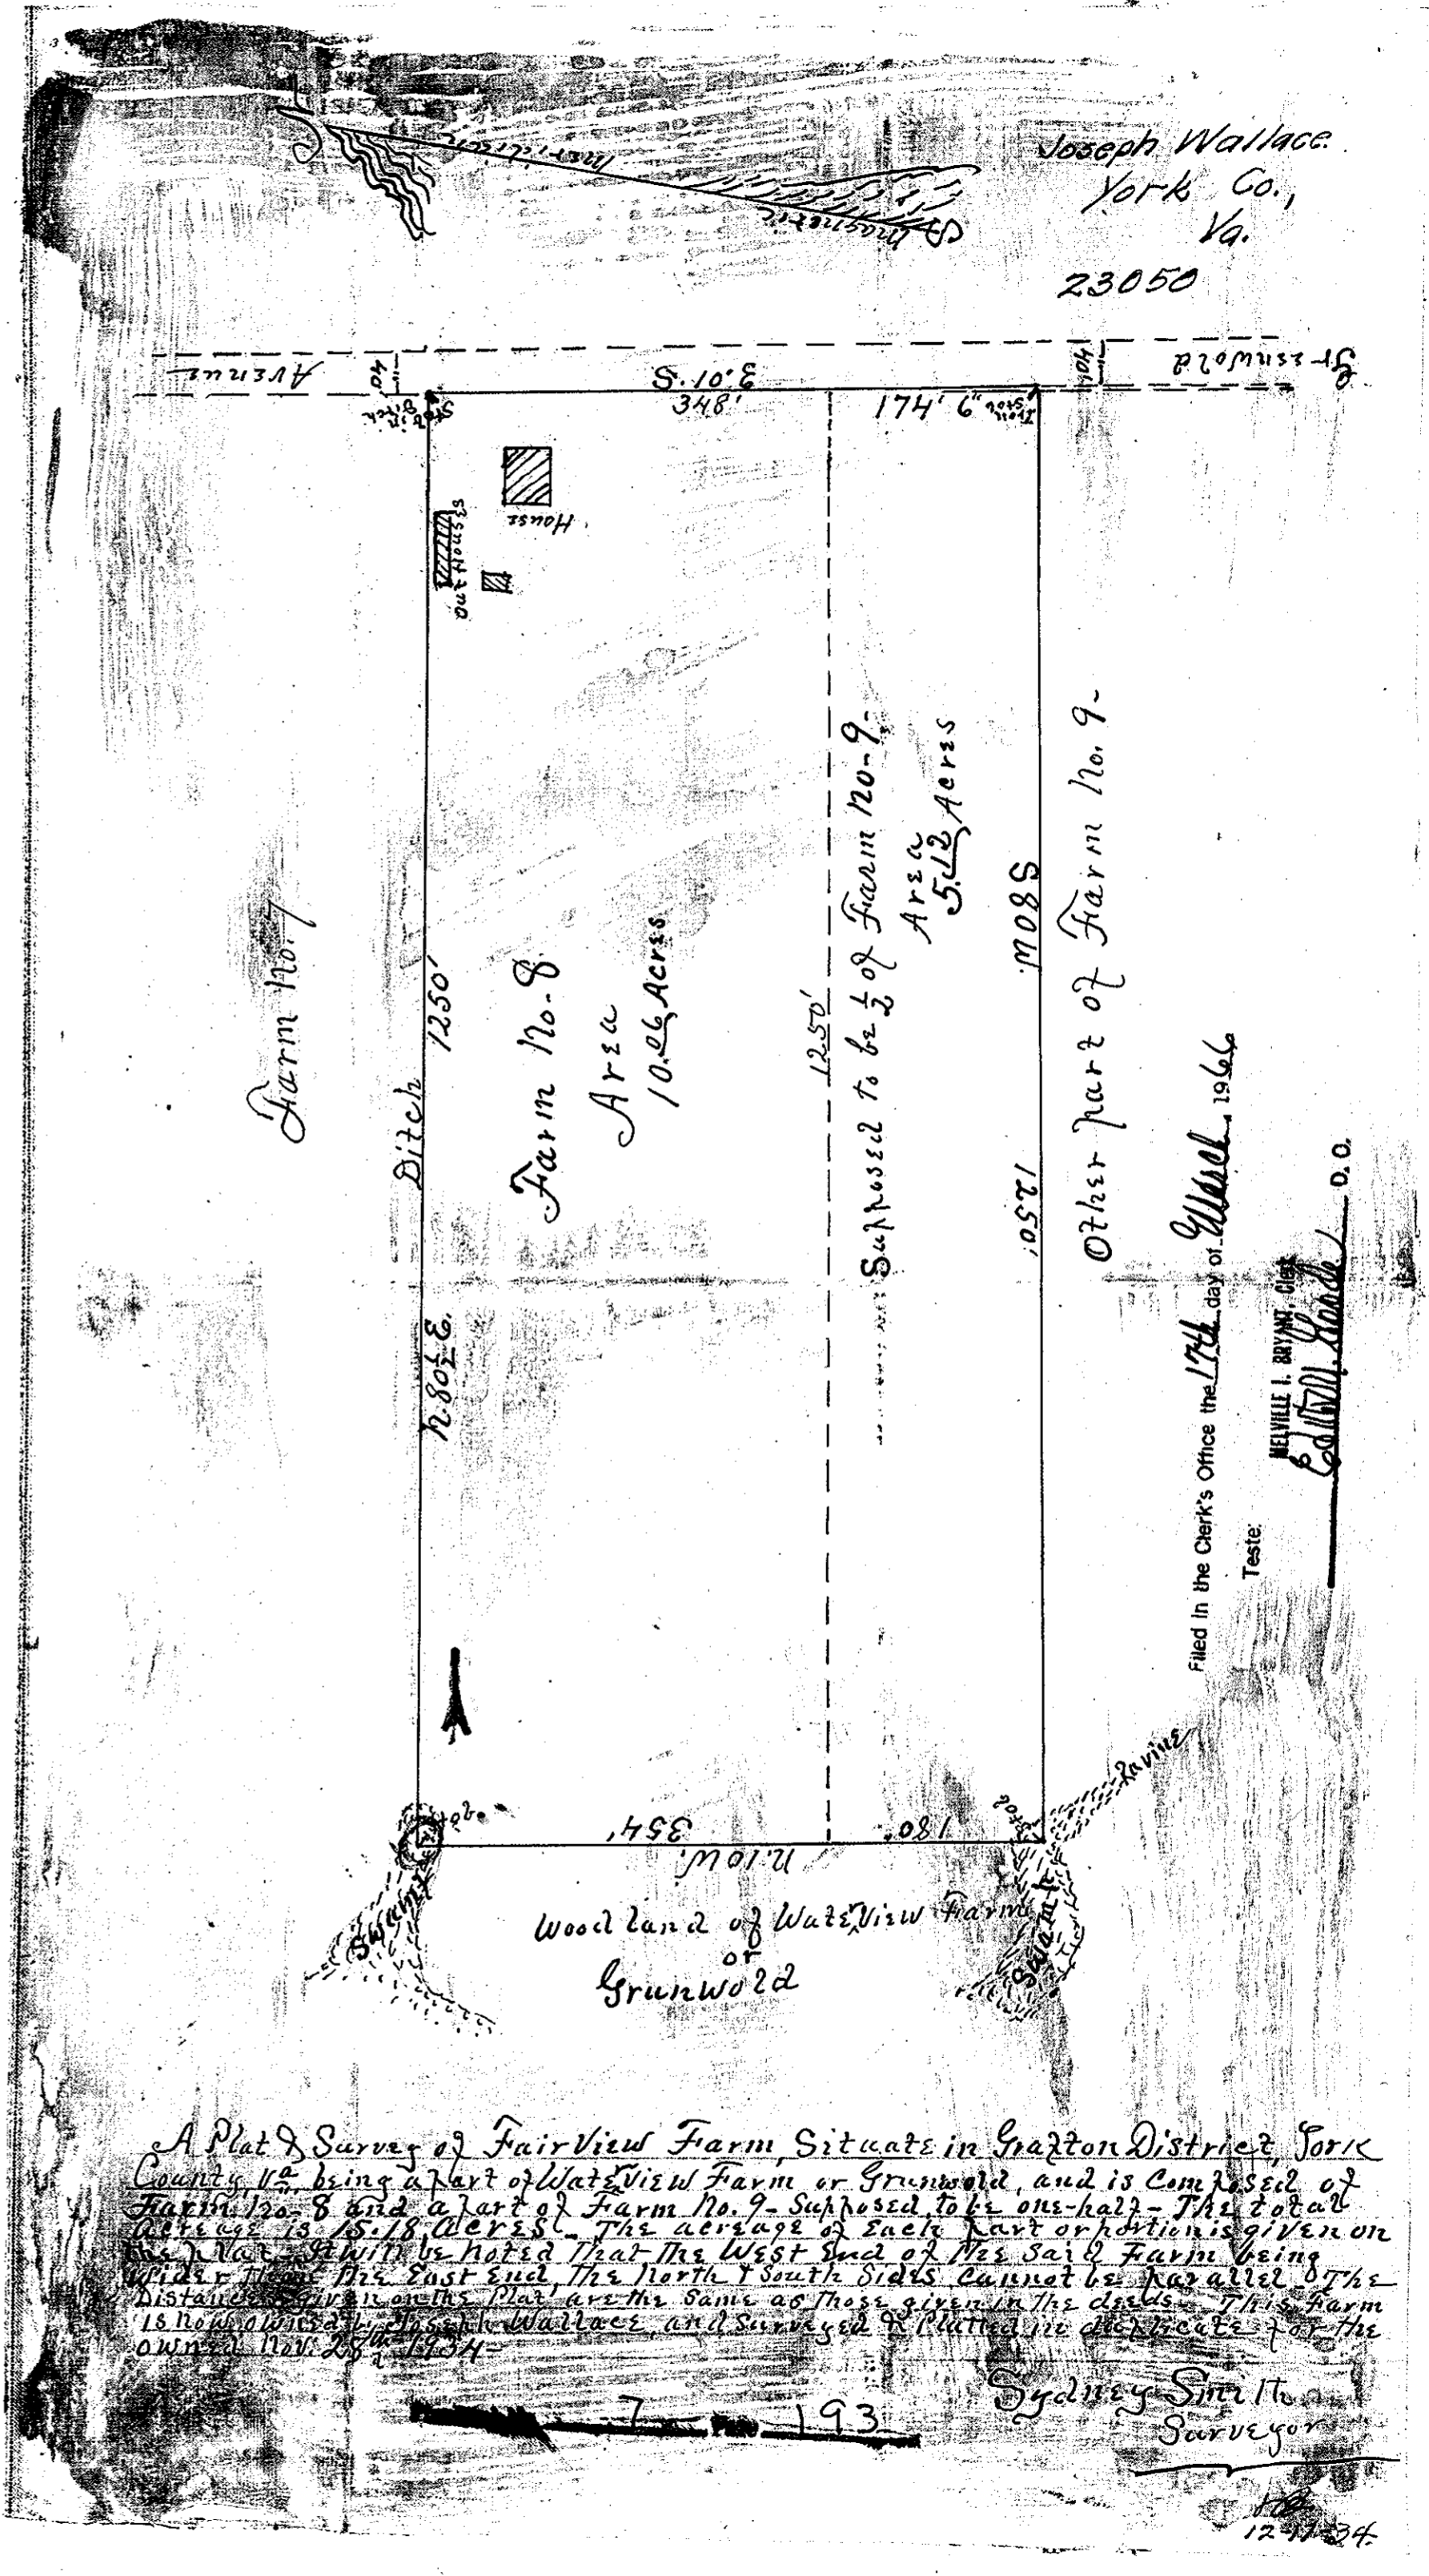 Joseph Wallace.
York Co.,
Va.
23050
Magnetic Meridian
Avenue
40'
S.10.E.
40'
Greenwold
Stob in Ditch
348'
174'.9"
Iron Stob
House
Out Houses
Farm No. 7
Ditch
1250'
N.80½E.
Farm No. 8.
Area
10.06 Acres
1250'
Supposed to be ½ of Farm No. 9-
Area
5.12 Acres
S80W.
1250'
Other part of Farm No. 9-
Filed in the Clerk's Office the 17th day of March, 1966
Teste:
MELVILLE I. BRYANT, Clerk
D. C.
Stob
354'
180'
Stob
N.10W.
Ravine
Swamp
Swamp
Woodland of Waterview Farm
or
Grunwold
A Plat & Survey of FairView Farm, Situate in Grafton District, York
County, Va. being a part of Waterview Farm or Grunwold, and is Composed of
Farm No. 8 and a part of Farm No. 9- Supposed to be one-half- The total
acreage is 15.18 acres- The acreage of Each part or portion is given on
the plat- It will be noted That The West End of The Said Farm being
wider than The East End, The North & South Sides cannot be parallel- The
Distances given on the Plat are the Same as Those given in The deeds- This Farm
is now owned by Joseph Wallace, and Surveyed & Platted in duplicate for the
owner Nov. 28th 1934-
Sydney Smith
Surveyor
7 193
12-17-34